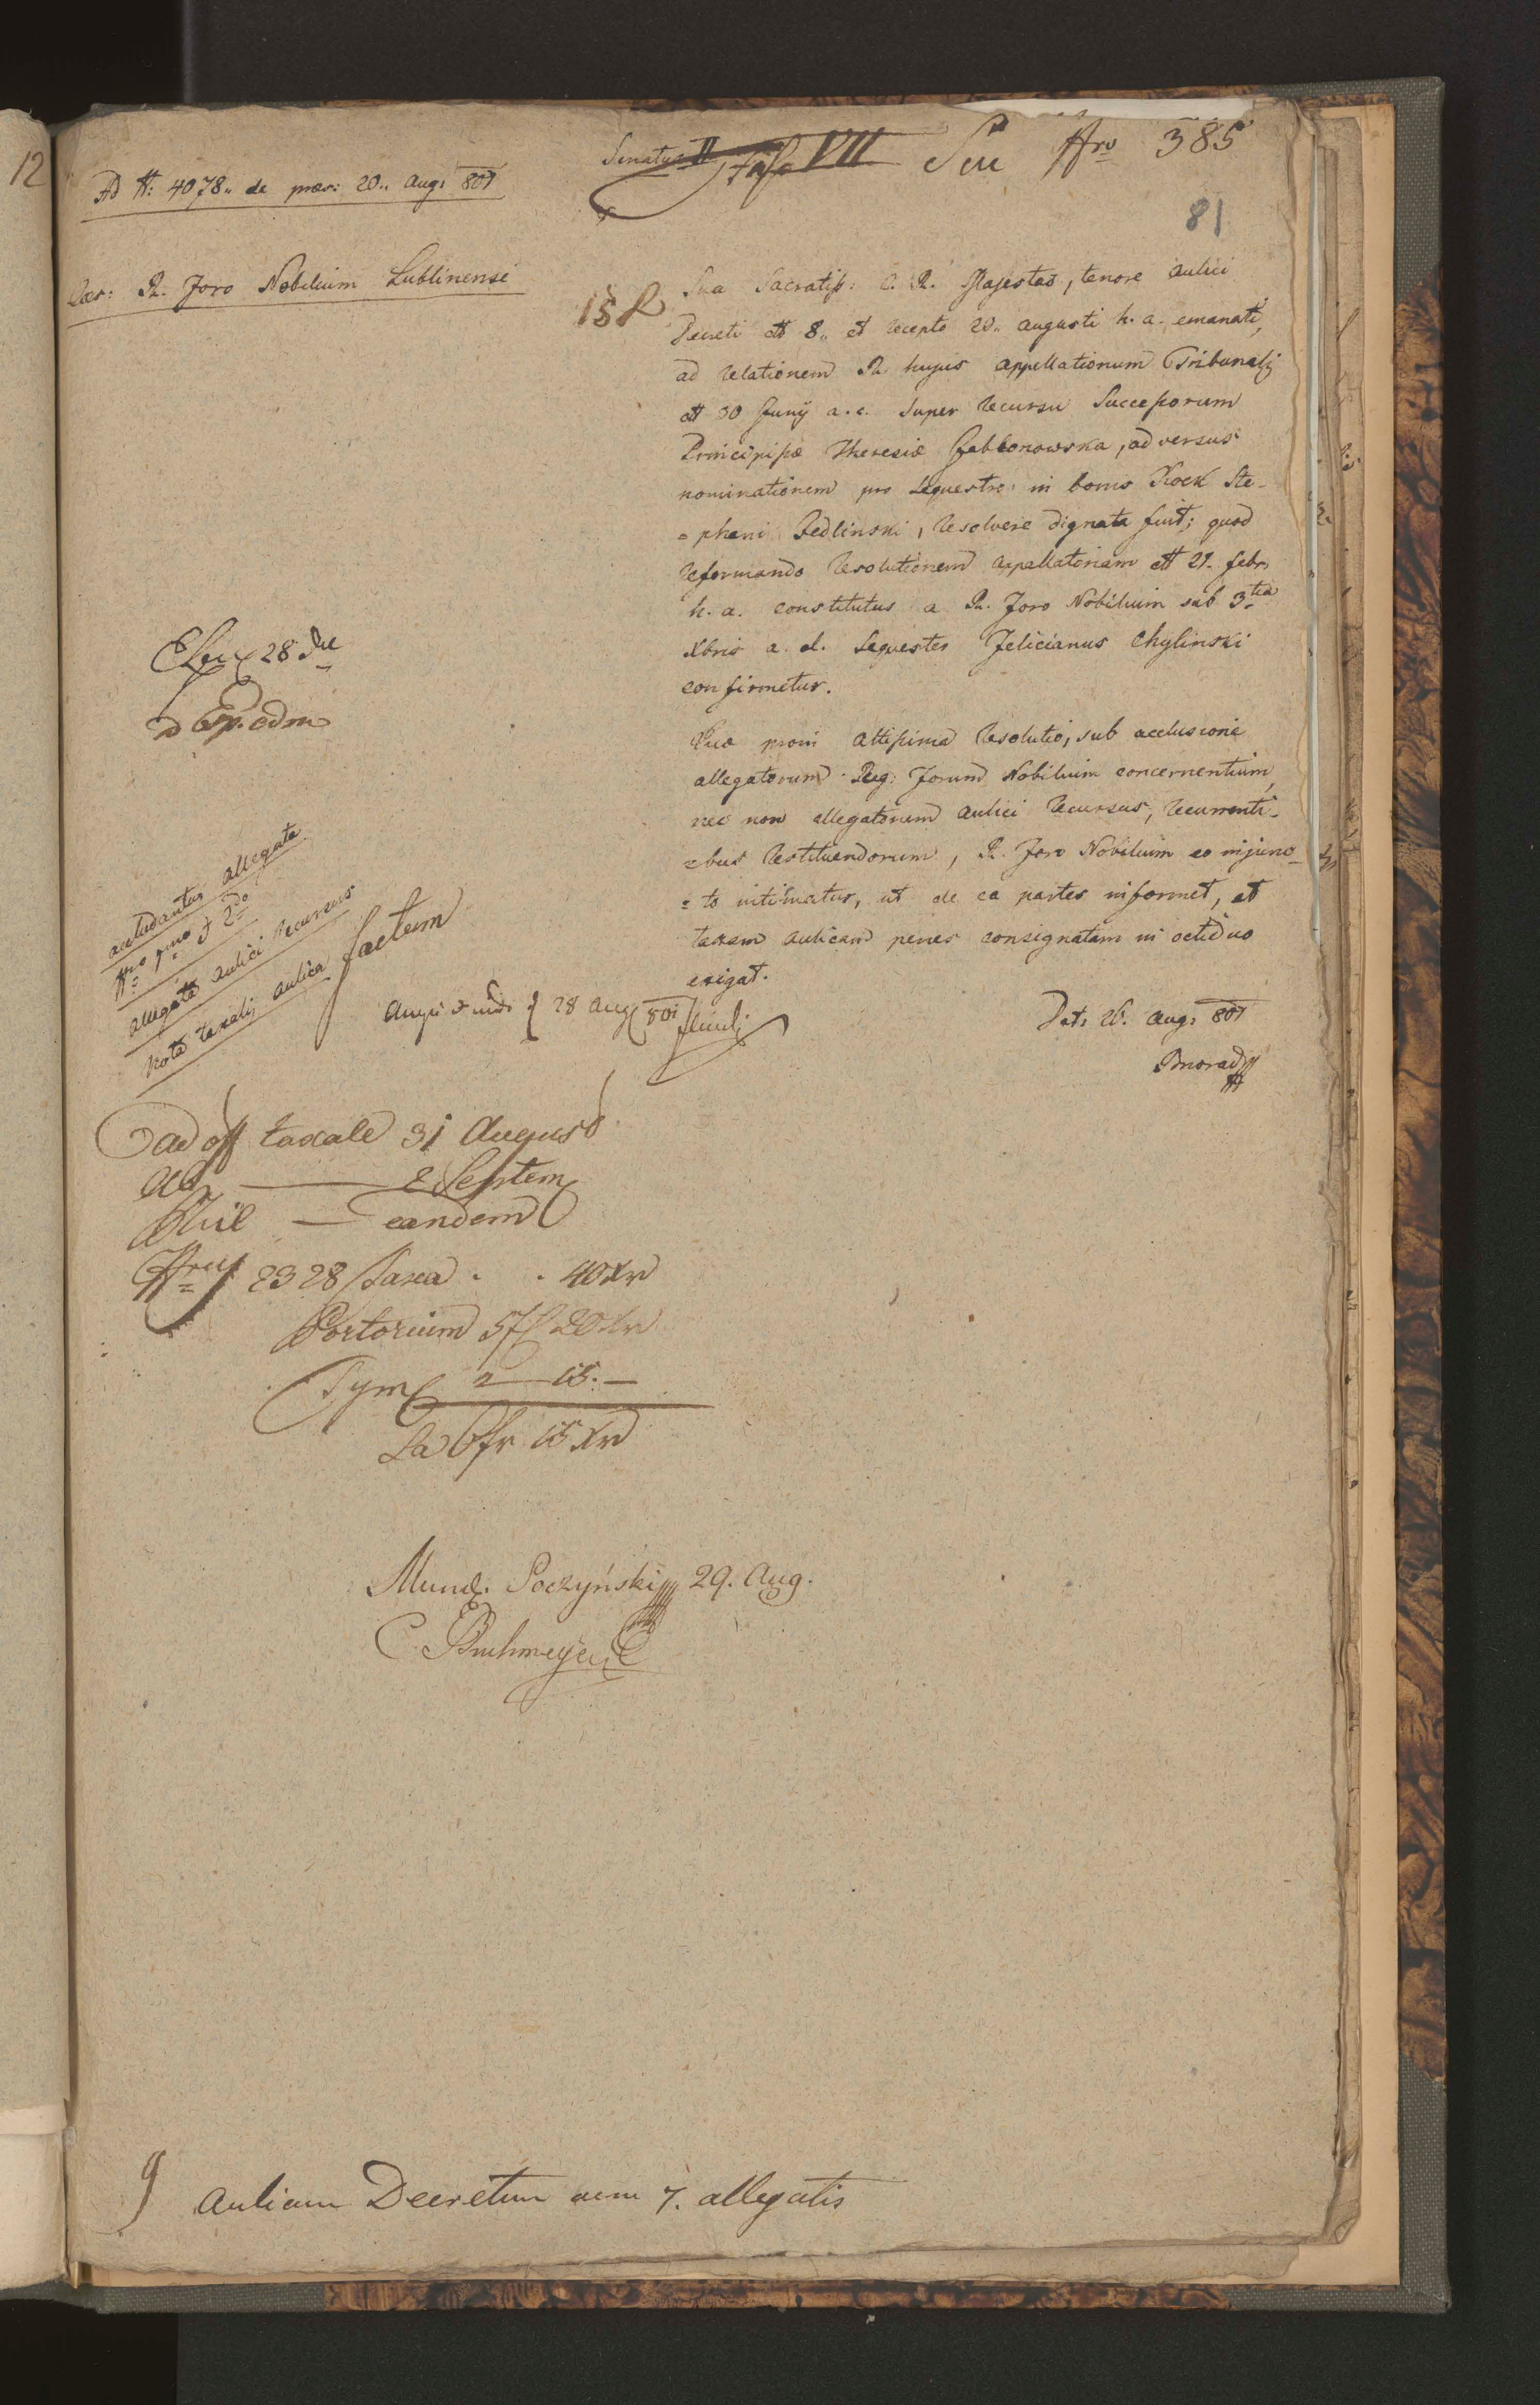 12
Senatus II
VII
Seu Nro 385
Ad N: 4078 de præs: 20 Aug: 801
81
Cæs: R. Foro Nobilium Lublinensi
Sua Sacratiss: C. R. Majestas, tenore aulici
Decreti dtt 8 et recepto 20 augusti h. a. emanati,
ad relationem R. hujus appellationum Tribunalis
dtt 30 Junÿ a. c. super recursu Successorum
Principissæ Theresiæ Jabbonowska, adversus
nominationem pro sequestro in bonis Kock Ste-
= phani Jedlinski, resolvere dignata fuit; quod
reformando resolutionem appellatoriam dtt 21. febr.
h. a. constitutus a R. Foro Nobilium sub 3tia
Xbris a. el. sequester Felicianus Chylinski
confirmetur.
Quæ proin altissima resolutio, sub acclusione
allegatorum Reg: Forum Nobilium concernentium,
nec non allegatorum aulici recursus, recurrenti-
= bus restituendorum, R. Foro Nobilium eo injunc-
= to intimatur, ut de ea partes informet, et
taxam aulicam penes consignatam in octiduo
exigat.
Dat: 26. Aug: 801
28
accludantur allegata
Nro 1mo et 2do
allegata aulici recursus
Nota taxalis aulica
factum
28 Aug 801
ad off taxale 31 August
2 Septem
eandem
2328 Taxa . . 40 Xr
Portorium 3f 20 Xr
2 — 15. —
La 6fr 15 Xr
Mund. Poczyński 29. Aug.
C. Bruhmeyer
9
aulicum Decretum cum 7. allegatis